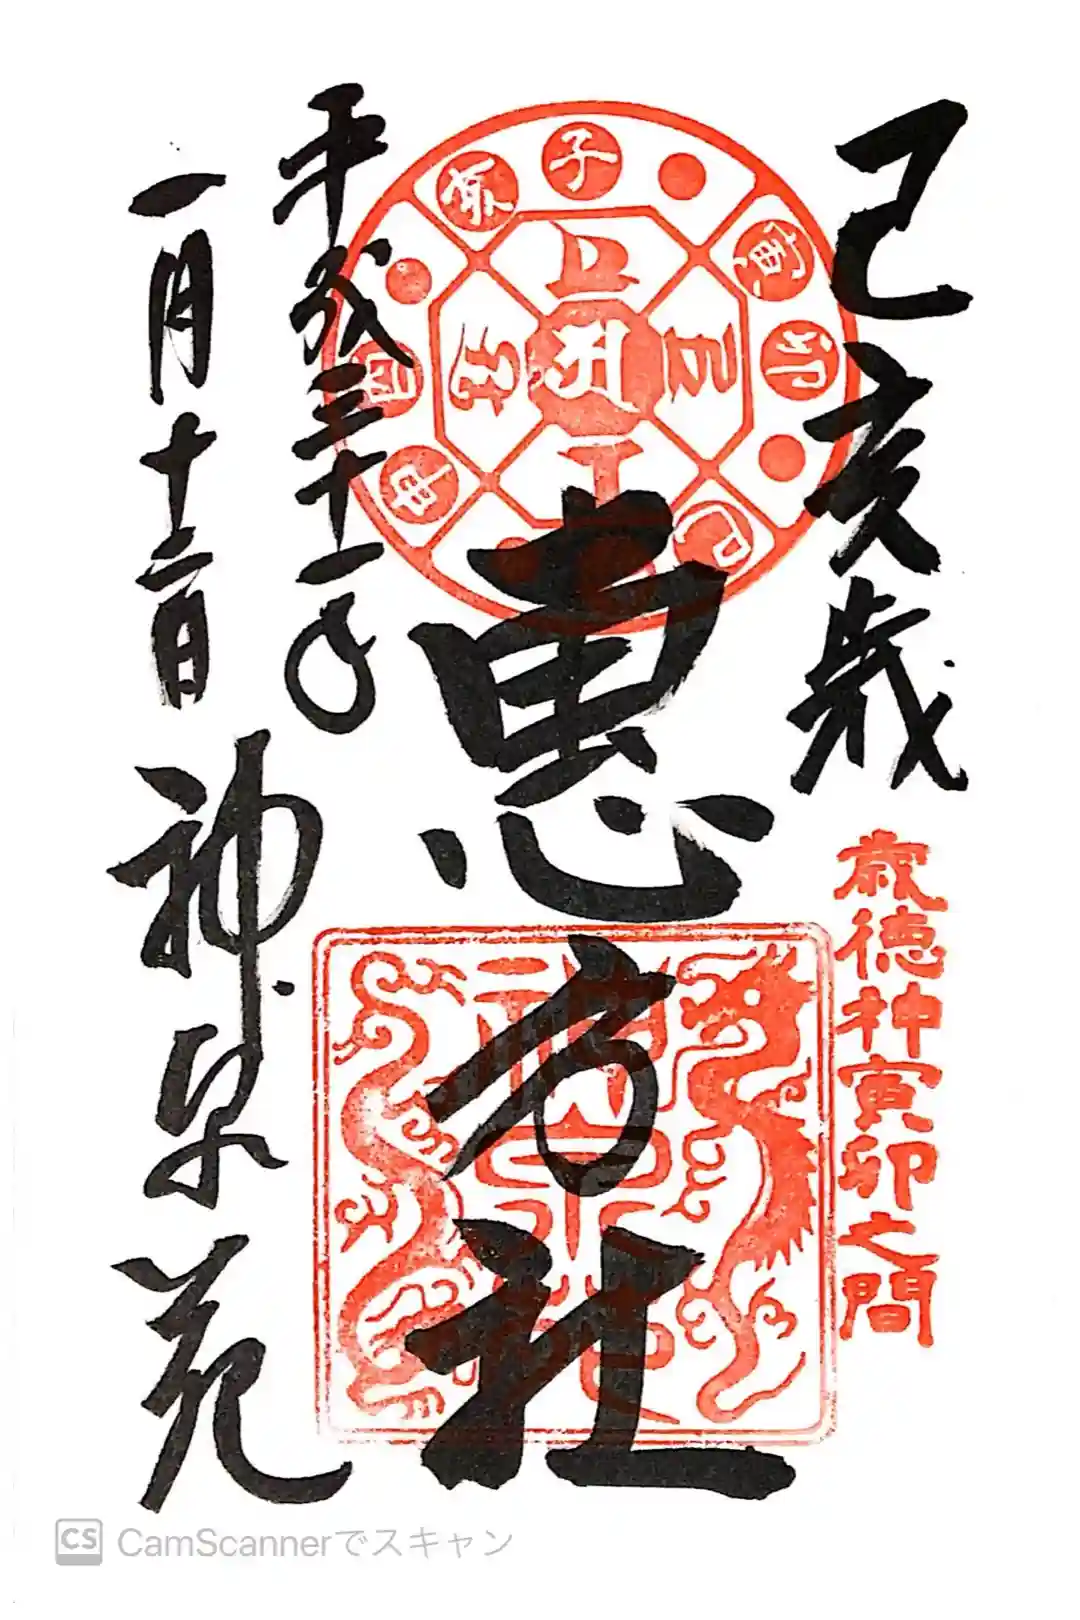 己亥歳
歳徳神寅卯之間
恵方社
平成三十一年
一月十二日
神泉苑
子
寅
卯
巳
申
酉
亥
CamScannerでスキャン